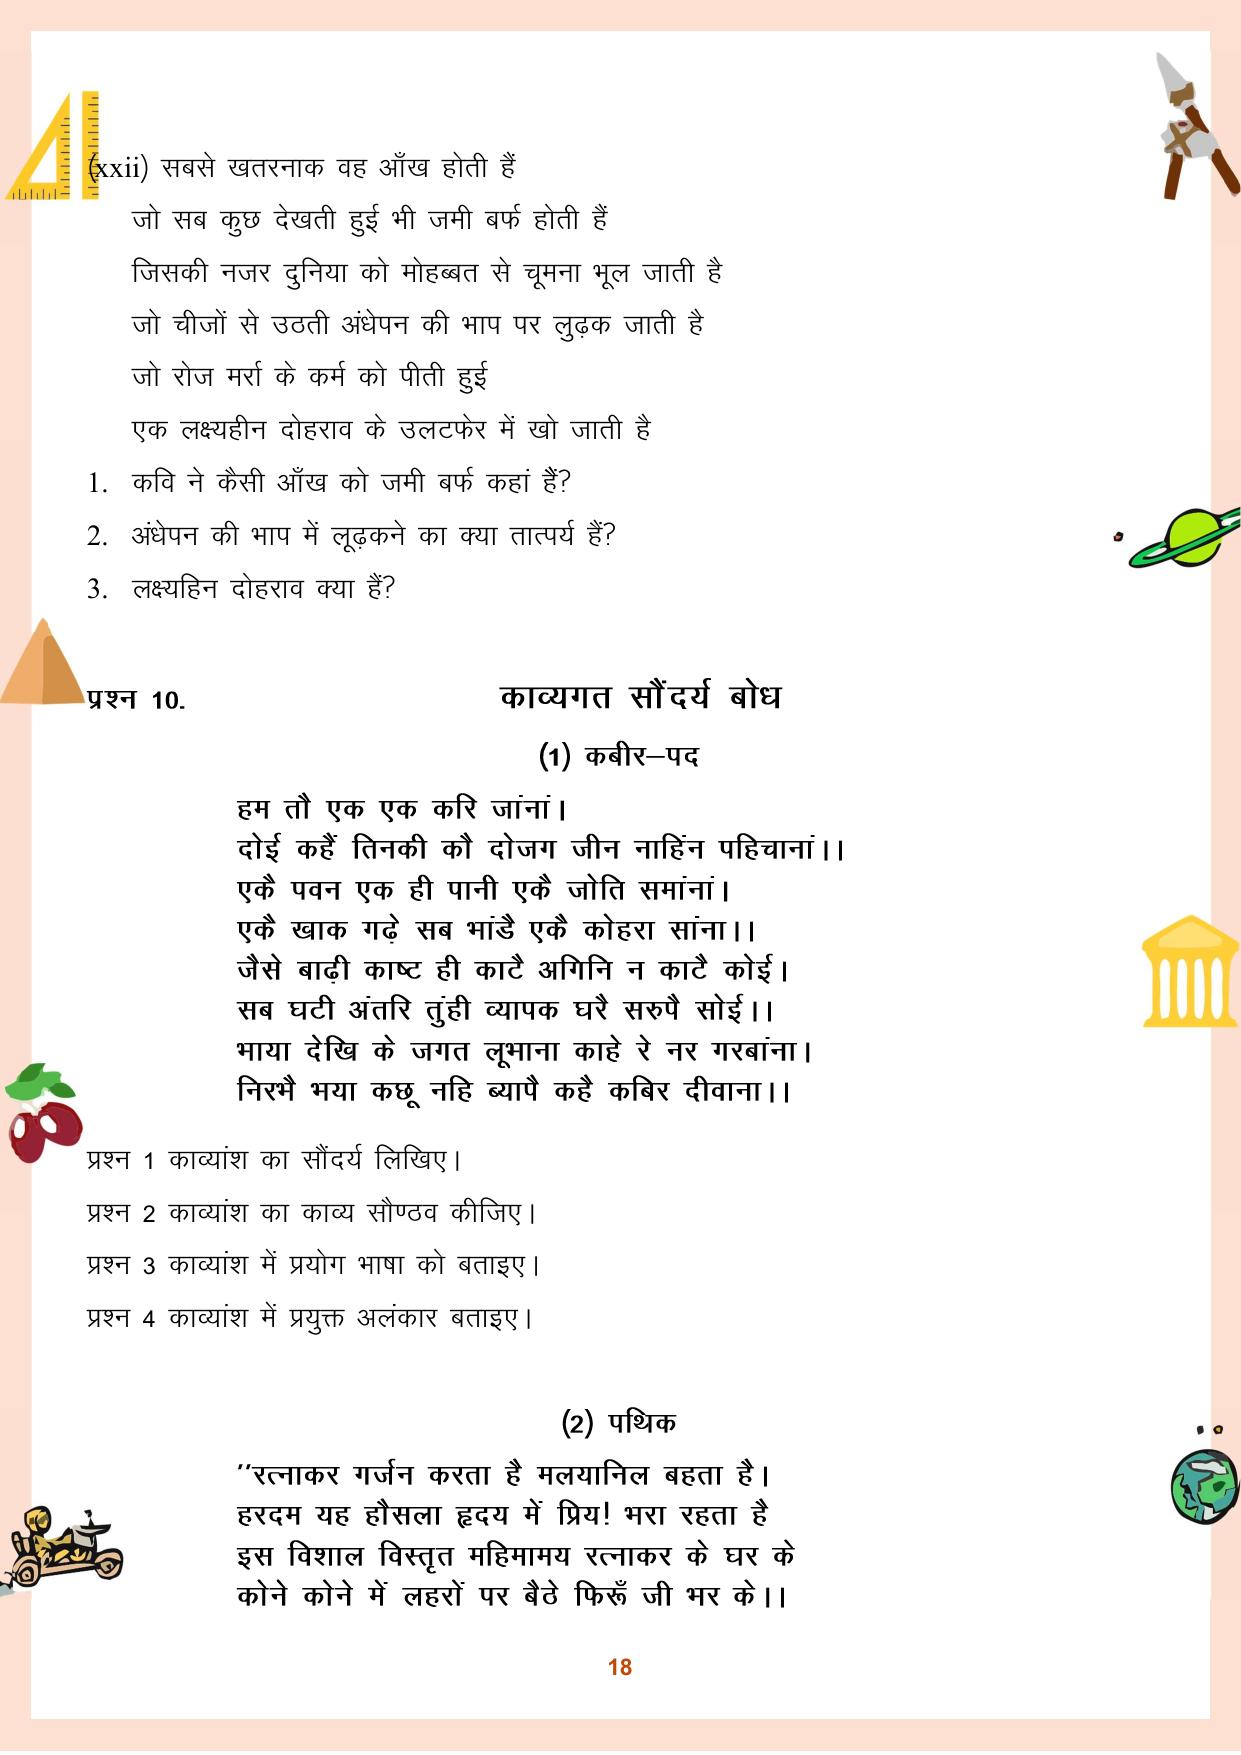 (xxii) सबसे खतरनाक वह आँख होती हैं
जो सब कुछ देखती हुई भी जमी बर्फ होती हैं
जिसकी नजर दुनिया को मोहब्बत से चूमना भूल जाती है
जो चीजों से उठती अंधेपन की भाप पर लुढ़क जाती है
जो रोज मर्रा के कर्म को पीती हुई
एक लक्ष्यहीन दोहराव के उलटफेर में खो जाती है
1. कवि ने कैसी आँख को जमी बर्फ कहां हैं?
2. अंधेपन की भाप में लूढ़कने का क्या तात्पर्य हैं?
3. लक्ष्यहिन दोहराव क्या हैं?
प्रश्न 10. काव्यगत सौंदर्य बोध
(1) कबीर–पद
हम तौ एक एक करि जांनां।
दोई कहैं तिनकी कौ दोजग जीन नाहिंन पहिचानां।।
एकै पवन एक ही पानी एकै जोति समांनां।
एकै खाक गढ़े सब भांडै एकै कोहरा सांना।।
जैसे बाढ़ी काष्ट ही काटै अगिनि न काटै कोई।
सब घटी अंतरि तुंही व्यापक घरै सरुपै सोई।।
भाया देखि के जगत लूभाना काहे रे नर गरबांना।
निरभै भया कछू नहि ब्यापै कहै कबिर दीवाना।।
प्रश्न 1 काव्यांश का सौंदर्य लिखिए।
प्रश्न 2 काव्यांश का काव्य सौण्ठव कीजिए।
प्रश्न 3 काव्यांश में प्रयोग भाषा को बताइए।
प्रश्न 4 काव्यांश में प्रयुक्त अलंकार बताइए।
(2) पथिक
’’रत्नाकर गर्जन करता है मलयानिल बहता है।
हरदम यह हौसला हृदय में प्रिय! भरा रहता है
इस विशाल विस्तृत महिमामय रत्नाकर के घर के
कोने कोने में लहरों पर बैठे फिरूँ जी भर के।।
18